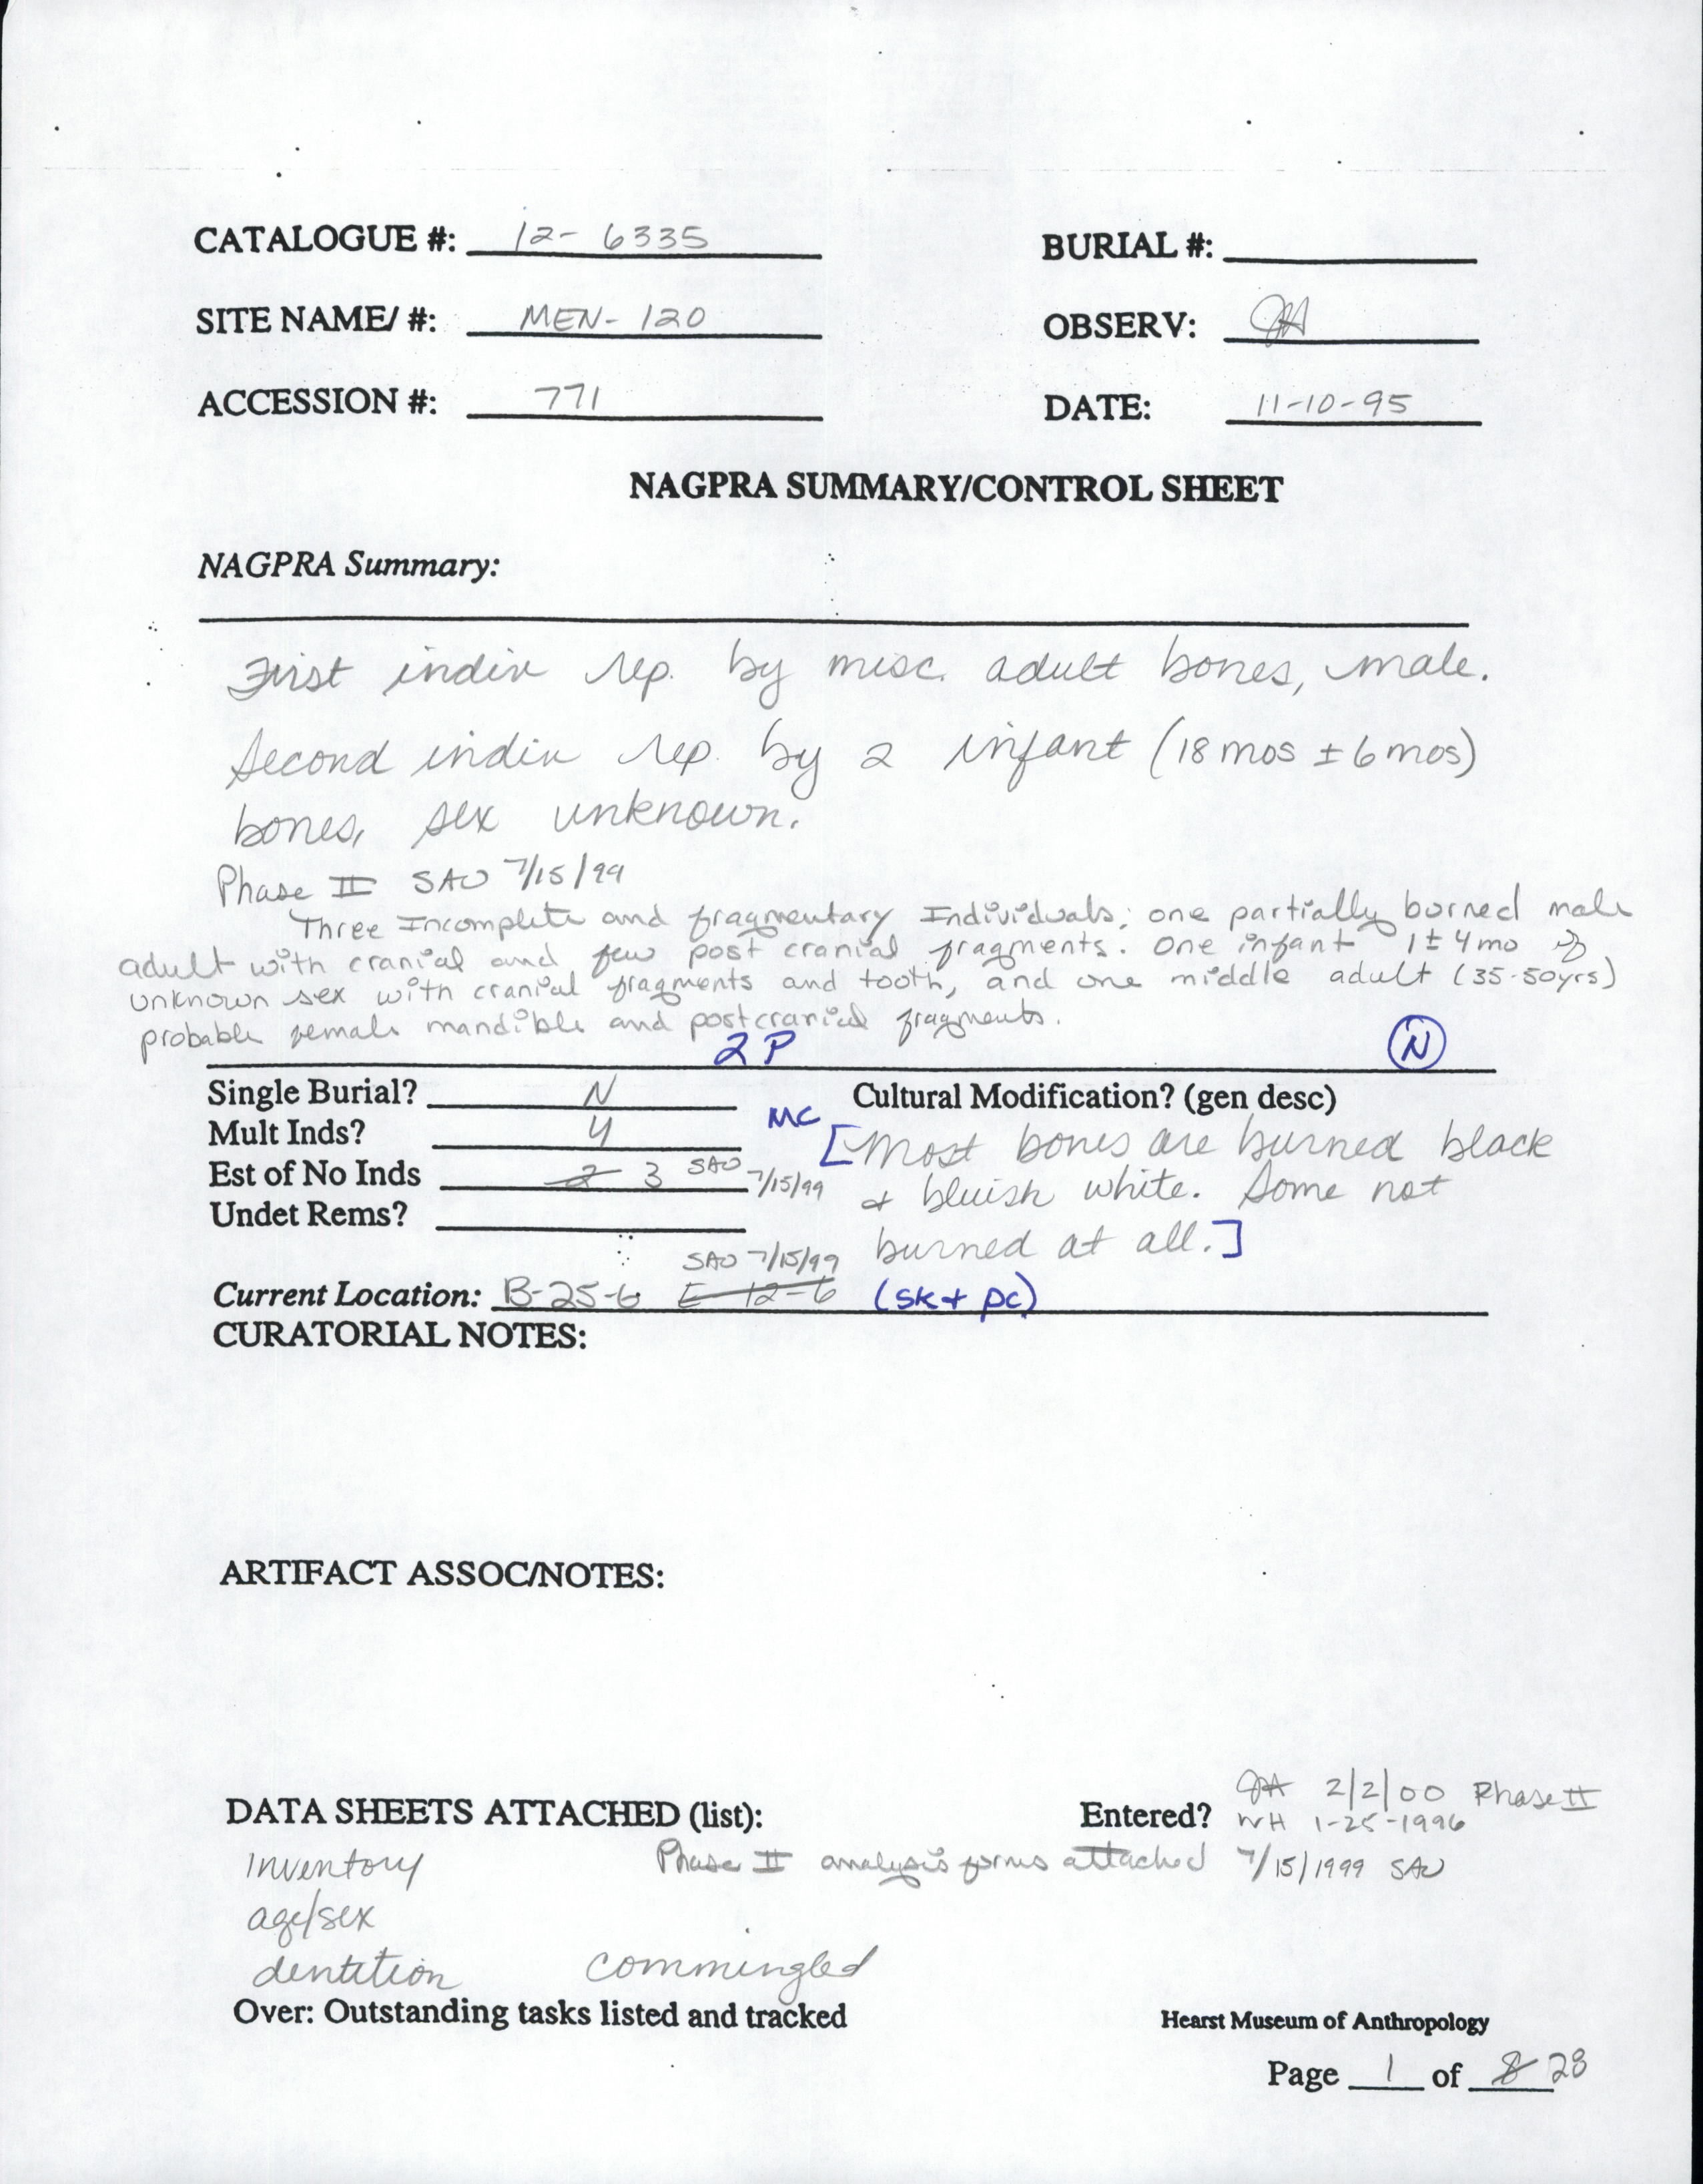 CATALOGUE #: 12-6335 BURIAL #:
SITE NAME/ #: MEN-120 OBSERV: JA
ACCESSION #: 771 DATE: 11-10-95
NAGPRA SUMMARY/CONTROL SHEET
NAGPRA Summary:
First indiv rep. by misc. adult bones, male.
Second indiv rep. by 2 infant (18 mos ± 6 mos)
bones, sex unknown.
Phase II SAW 7/15/99
Three Incomplete and fragmentary Individuals; one partially burned male
adult with cranial and few post cranial fragments. One infant 1 ± 4 mo of
unknown sex with cranial fragments and tooth, and one middle adult (35-50yrs)
probable female mandible and postcranial fragments.
2P N
Single Burial? N Cultural Modification? (gen desc)
Mult Inds? Y MC [Most bones are burned black
Est of No Inds 2 3 SAW 7/15/99 + bluish white. Some not
Undet Rems? burned at all.]
SAW 7/15/99
Current Location: B-25-6 E-12-6 (sk + pc)
CURATORIAL NOTES:
ARTIFACT ASSOC/NOTES:
JA 2/2/00 Phase II
DATA SHEETS ATTACHED (list): Entered? WH 1-25-1996
Inventory Phase II analysis forms attached 7/15/1999 SAW
age/sex
dentition commingled
Over: Outstanding tasks listed and tracked Hearst Museum of Anthropology
Page 1 of 8 28